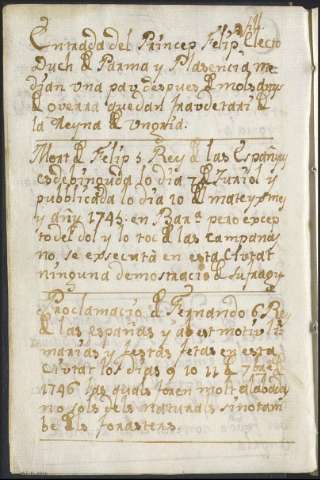 Entrada del Princep Felip Electo
Duch d Parma y Plasencia me
dian una pau despues d mols anys
d guerra quedan fraudetari d
la Reyna d Ungria.
Mort d Felip 5. Rey d las Españas
esdebinguda lo dia 9 d Juriol y
publicada lo dia 20 d mateyx mes
y any 1745. en Barna pero excep
to del dol y lo toc d las campanas
no se exsecutà en esta Ciutat
ninguna demostraciò d sufragis
Proclamaciò d Fernando 6. Rey
d las españas y ab est motiu lu
marias y festas fetas en esta
Ciutat los dias 9 10 11 d 7bre
1746 las quals foren molt alabadas
no sols dels naturals sino tam
be dls forasters.